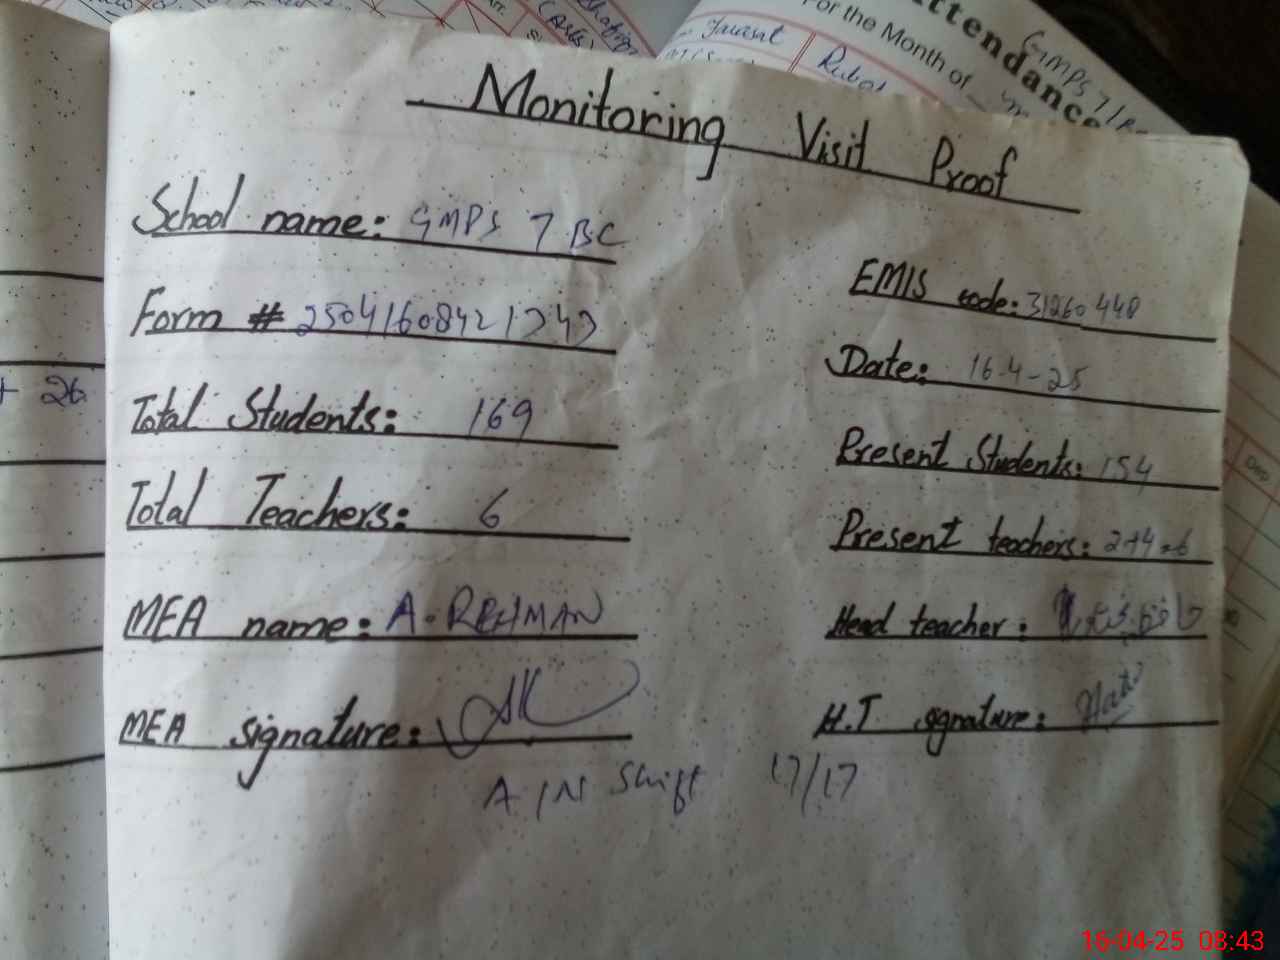 Attendance
For the Month of
GMPS 7/BC
Monitoring Visit Proof
School name: GMPS 7 BC
EMIS code: 31260448
Form # 25041608421243
Date: 16-4-25
+ 26
Total Students: 169
Present Students: 154
Total Teachers: 6
Present teachers: 2+4=6
MEA name: A. REHMAN
Head teacher:
MEA signature:
H.T signature:
A/N Shift 17/17
Dep
16-04-25 08:43